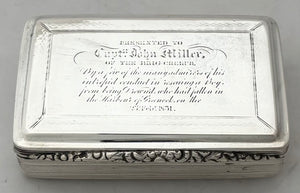 PRESENTED TO
Captn. John Miller,
OF THE BRIG
By a few of the many admirers of his
intrepid conduct in rescuing a Boy
from being Drowned, who had fallen in
the Harbour of on the
1831.